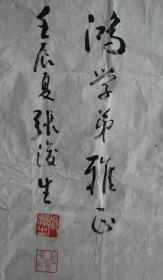 鸿学弟雅正
壬辰夏张浚生